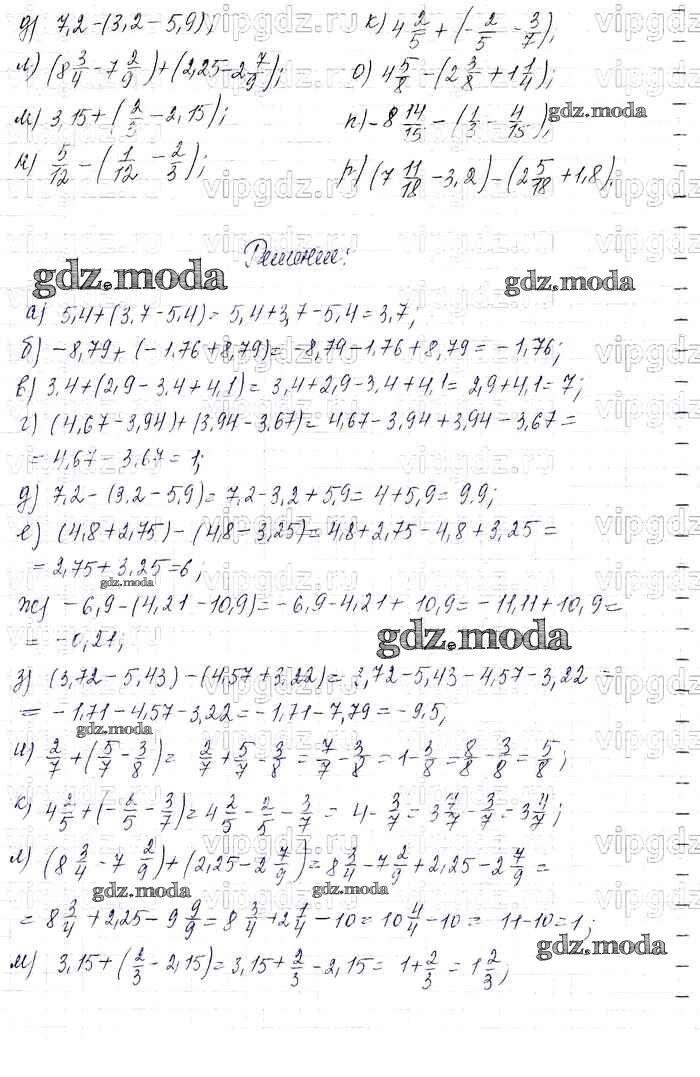 д) 7,2-(3,2-5,9); к) 4 2/5 + (-2/5 - 3/7);
л) (8 3/4 - 7 2/9)+(2,25-2 7/9); о) 4 5/8 - (2 3/8 + 1 1/4);
м) 3,15+(2/3 - 2,15); п) -8 14/15 - (1/3 - 4/15);
н) 5/12 - (1/12 - 2/3); р) (7 11/18 - 3,2)-(2 5/18 + 1,8).
Решение:
а) 5,4+(3,7-5,4)= 5,4+3,7-5,4=3,7;
б) -8,79+(-1,76+8,79)= -8,79-1,76+8,79= -1,76;
в) 3,4+(2,9-3,4+4,1)= 3,4+2,9-3,4+4,1= 2,9+4,1= 7;
г) (4,67-3,94)+(3,94-3,67)= 4,67-3,94+3,94-3,67=
= 4,67-3,67= 1;
д) 7,2-(3,2-5,9)= 7,2-3,2+5,9= 4+5,9= 9,9;
е) (4,8+2,75)-(4,8-3,25)=4,8+2,75-4,8+3,25=
= 2,75+3,25=6;
ж) -6,9-(4,21-10,9)= -6,9-4,21+10,9= -11,11+10,9=
= -0,21;
з) (3,72-5,43)-(4,57+3,22)= 3,72-5,43-4,57-3,22=
= -1,71-4,57-3,22= -1,71-7,79= -9,5;
и) 2/7+(5/7-3/8)= 2/7+5/7-3/8= 7/7-3/8= 1-3/8= 8/8-3/8= 5/8;
к) 4 2/5+(-2/5-3/7)= 4 2/5-2/5-3/7= 4-3/7= 3 7/7-3/7= 3 4/7;
л) (8 3/4-7 2/9)+(2,25-2 7/9)= 8 3/4-7 2/9+2,25-2 7/9=
= 8 3/4+2,25-9 9/9= 8 3/4+2 1/4-10= 10 4/4-10= 11-10= 1;
м) 3,15+(2/3-2,15)= 3,15+2/3-2,15= 1+2/3= 1 2/3;
gdz.moda
gdz.moda
gdz.moda
gdz.moda
gdz.moda
gdz.moda
gdz.moda
gdz.moda
gdz.moda
vipgdz.ru